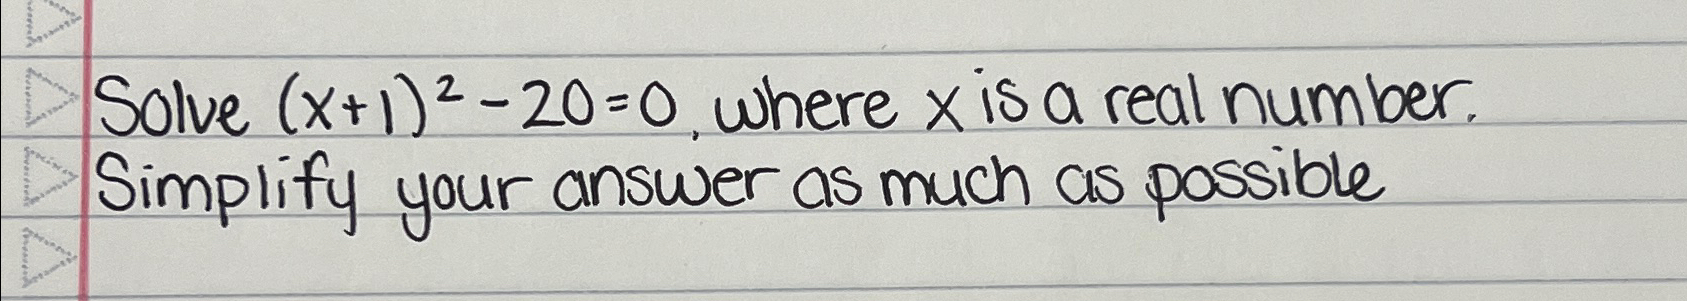 Solve (x+1)² - 20 = 0, where x is a real number.
Simplify your answer as much as possible